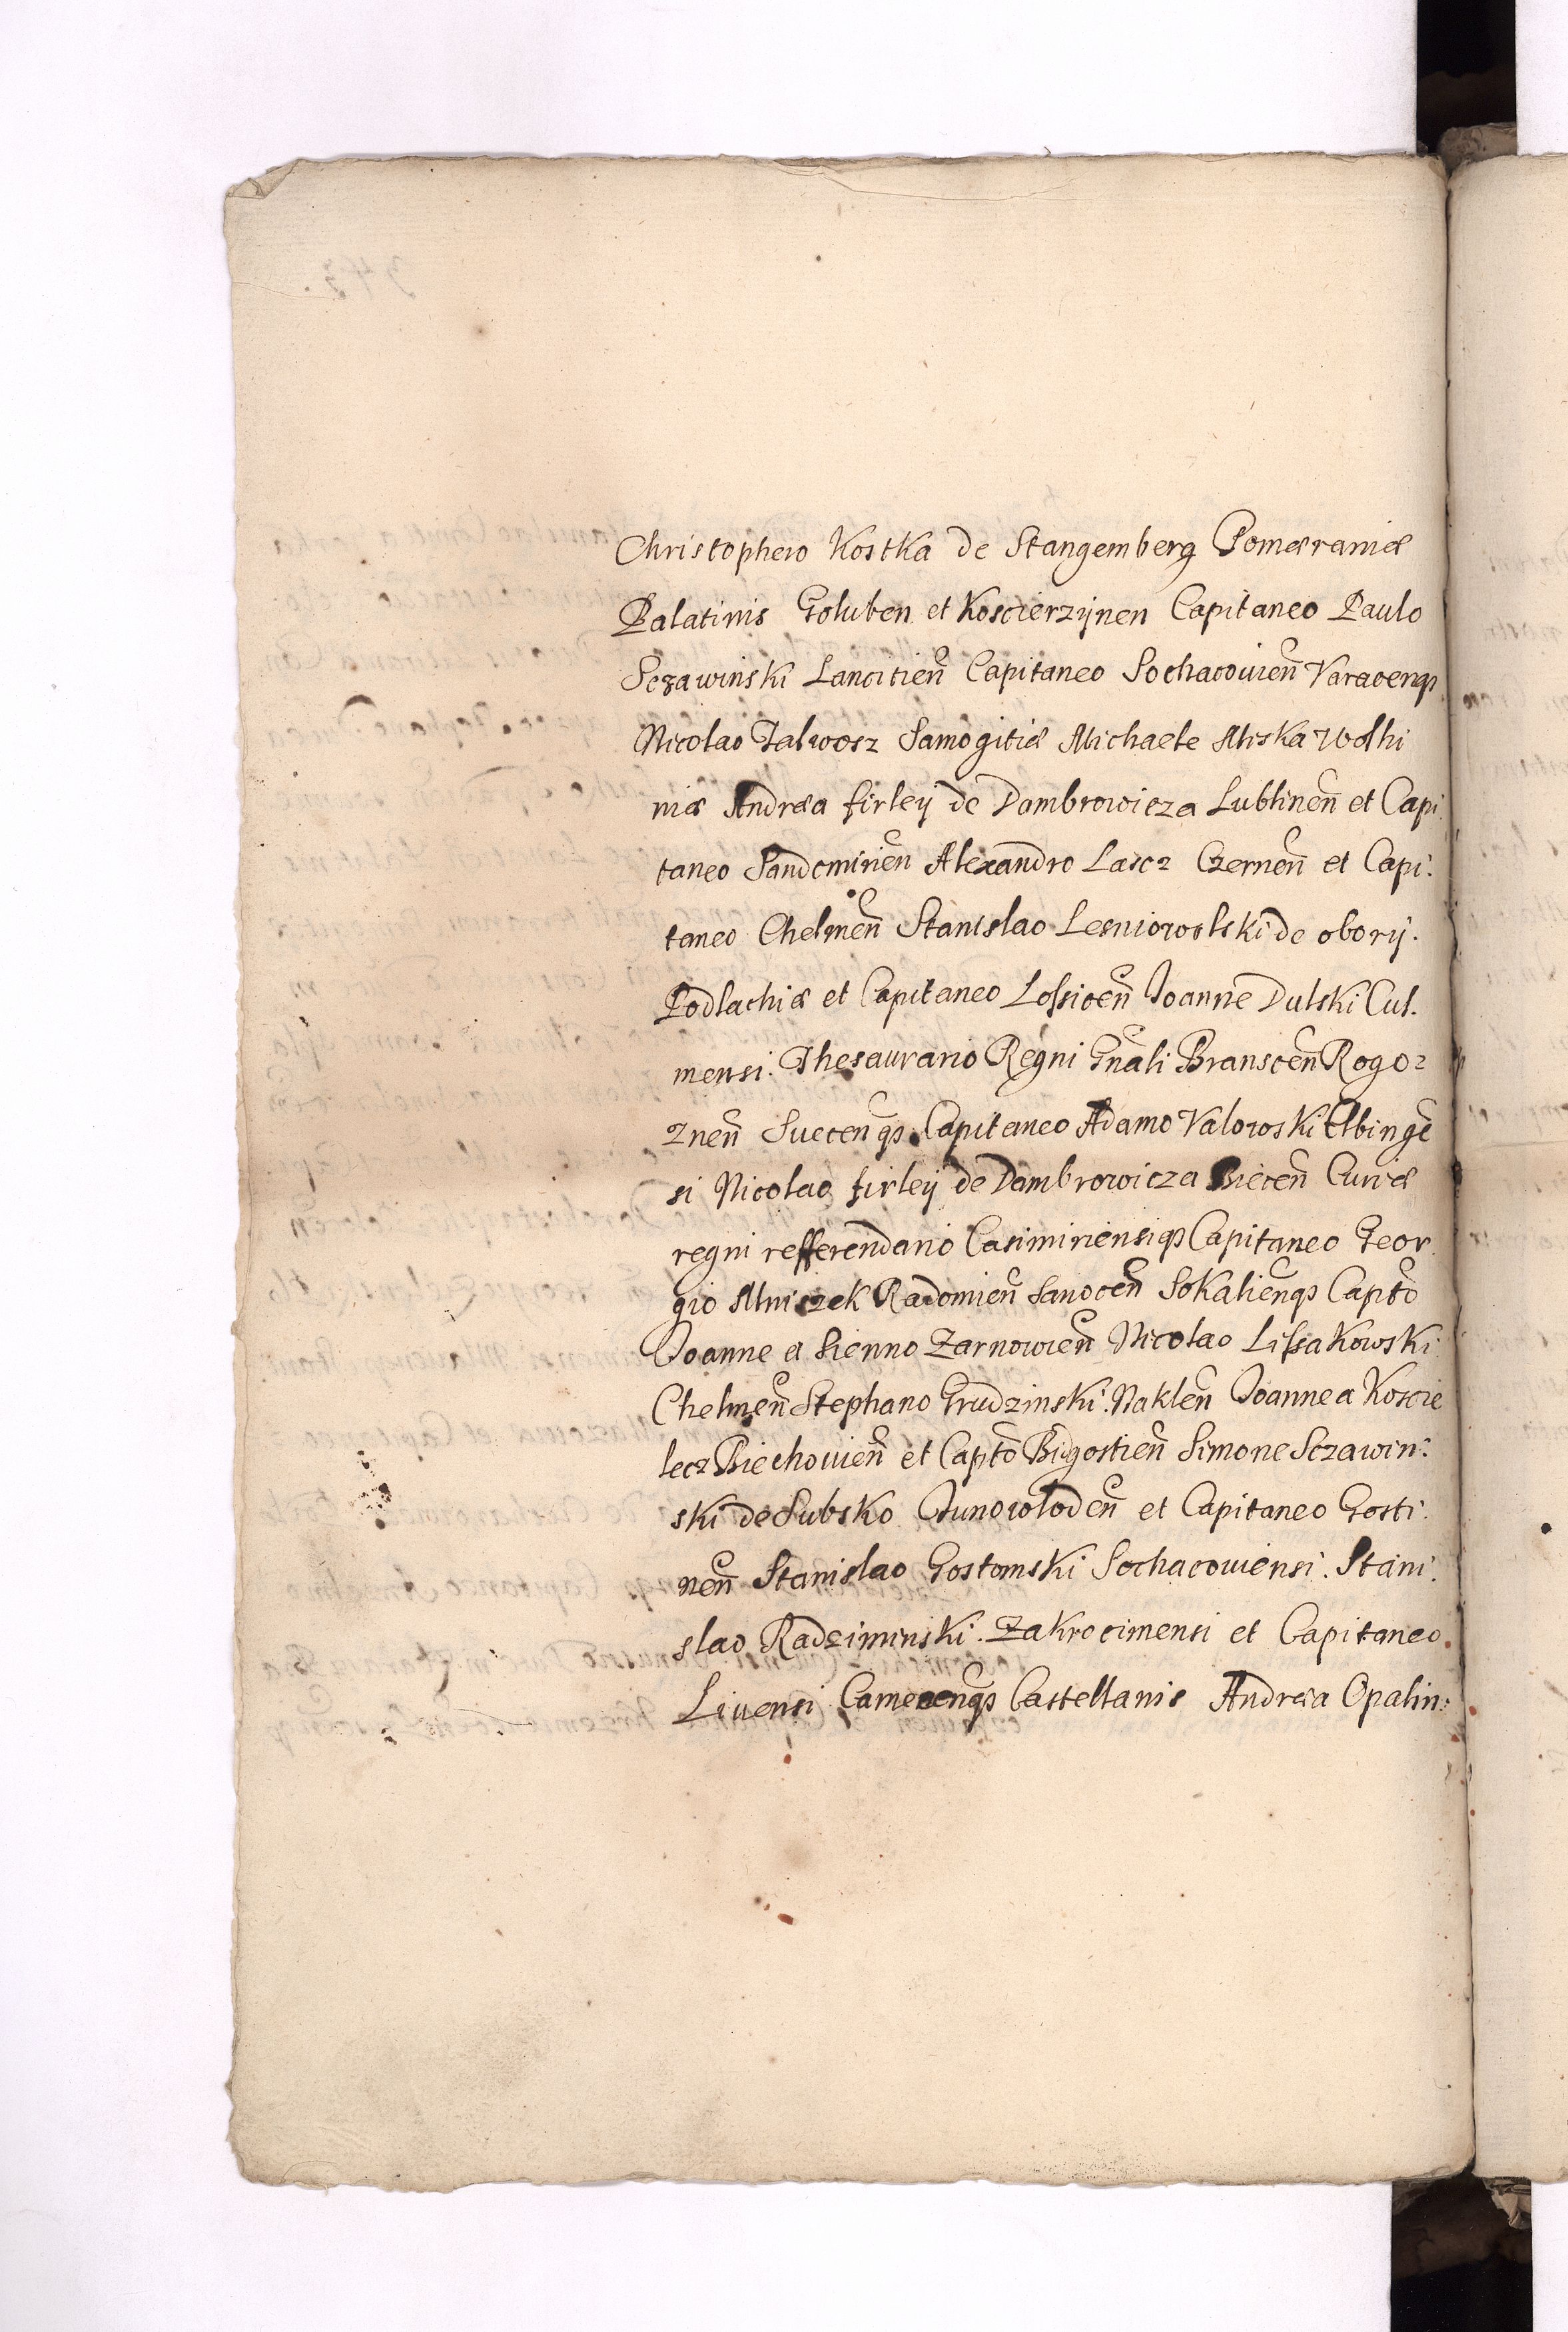 Christophero Kostka de Stangemberg Pomæraniæ
Palatinis Goluben et Koscierzÿnen Capitaneo Paulo
Sczawinski Lancitien̄ Capitaneo Sochacouien̄ Varacenqȝ
Nicolao Talwosz Samogitiæ Michaele Miska Wolhi
niæ Andræa firleÿ de Dambrowicza Lublinen̄ et Capi
taneo Sandomirien̄ Alexandro Lascz Czernen̄ et Capi:
taneo Chelmen̄ Stanislao Lesniowolski de oborÿ.
Podlachiæ et Capitaneo Lossicen̄ Joanne Dulski Cul.
mensi. Thesaurario Regni Gn̄ali Branscen̄ Rogo:
znen̄ Suecen̄qȝ Capitaneo Adamo Valowski Elbingē
si Nicolao firleÿ de Dambrowicza Biecen̄ Curiæ
regni refferendario Casimiriensiqȝ Capitaneo Geor
gio Mniszek Radomien̄ Sanocen̄ Sokalien̄qȝ Capt̄o
Joanne a Sienno Zarnowien̄ Nicolao Lissakowski
Chelmen̄ Stephano Grudzinski. Naklen̄ Joanne a Koscie
lecz Biechouien̄ et Capt̄o Bidgostien̄ Simone Sczawin:
ski de Subsko Junowloden̄ et Capitaneo Gosti:
nen̄ Stanislao Gostomski Sochacouiensi. Stani.
slao Radziminski. Zakrocimensi et Capitaneo
Liuensi Camecen̄qȝ Castellanis Andræa Opalin: